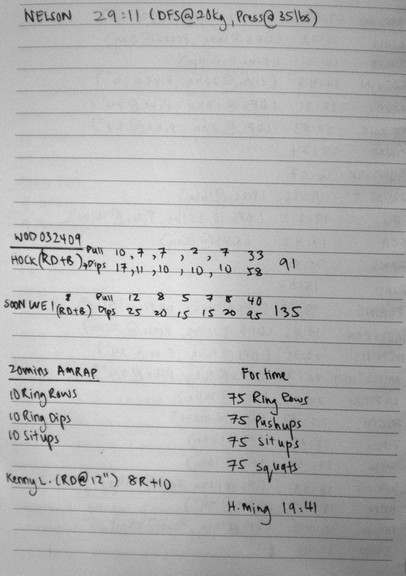 NELSON 29:11 (DFS@20kg, Press@35lbs)
WOD 032409
HOCK (RD+B) Pull 10, 7, 7, 2, 7 33
Dips 17, 11, 10, 10, 10 58 91
SOON WEI (RD+B) Pull 12 8 5 7 8 40
Dips 25 20 15 15 20 95 135
20mins AMRAP
10 Ring Rows
10 Ring Dips
10 Situps
Kenny L. (RD@12") 8R+10
For time
75 Ring Rows
75 Pushups
75 situps
75 squats
H.ming 19:41